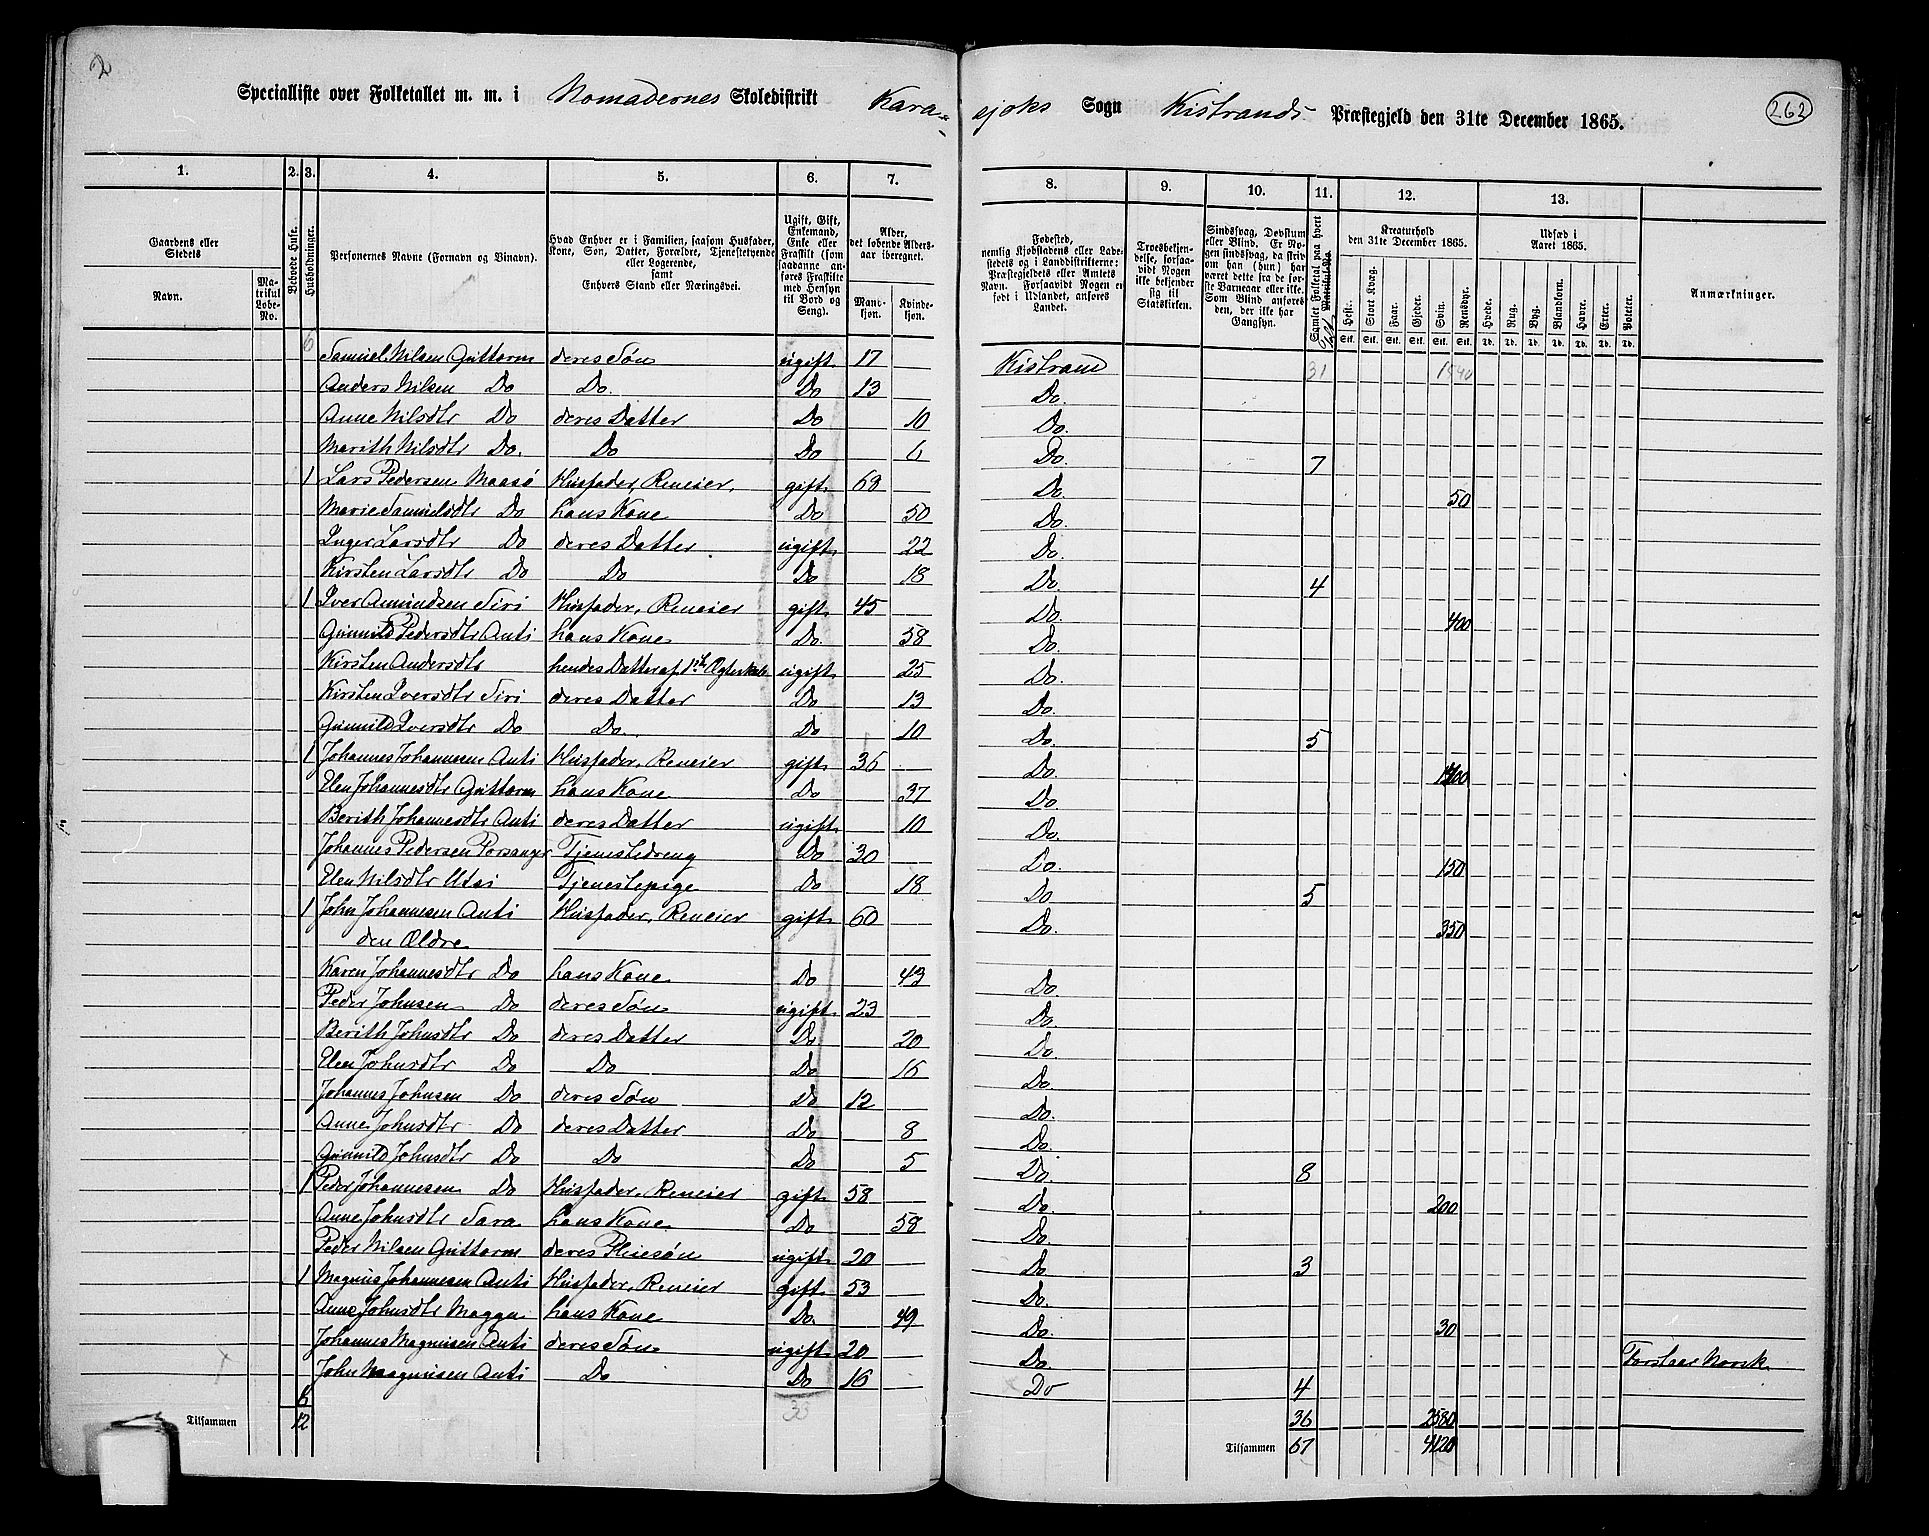 2
Specialliste over Folketallet m. m. i Nomadernes Skoledistrikt Kara-
sjoks Sogn Kistrands Præstegjeld den 31te December 1865.
262
1. 2. 3. 4. 5. 6. 7. 8. 9. 10. 11. 12. 13.
Gaardens eller Stedets
Navn.
Matrikul Løbe-No.
Beboede Huse.
Husholdninger.
Personernes Navne (Fornavn og Tilnavn).
Hvad Enhver er i Familien, saasom Husfader, Kone, Son, Datter, Forældre, Tjenestetyende eller Logerende,
samt
Enhvers Stand eller Næringsvei.
Ugift, Gift, Enkemand, Enke eller Fraskilt (som saadanne anføres Fraskilte med Hensyn til Bord og Seng).
Alder, det løbende Alders-aar iberegnet.
Mandkjøn.
Kvindekjøn.
Fødested,
nemlig Kjøbstadens eller Ladestedets og i Landdistrikterne: Præstegjeldets eller Amtets Navn. Forsaavidt Nogen er født i Udlandet, anføres Landet.
Troesbekjendelse, forsaavidt Nogen ikke bekjender sig til Statskirken.
Sindssvag, Døvstum eller Blind. Er Nogen sindssvag, da skriv om han (hun) har været dette fra de første Barneaar eller ikke. Som Blind anføres den, der ikke har Gangsyn.
Samlet Folketal paa hvert Matrikul-No.
Kreaturhold den 31te December 1865.
Hest. Stort Kvæg. Faar. Gjeder. Svin. Rensdyr.
Udsæd i Aaret 1865.
Hvede. Rug. Byg. Blandkorn. Havre. Erter. Poteter.
Anmærkninger.
6 Samuel Nilsen Guttorm deres Søn ugift 17 Kistrand 31 1540
Anders Nilsen Do Do. Do 13 Do.
Anne Nilsdtr Do deres Datter Do 10 Do.
Marith Nilsdtr Do. Do Do 6 Do. 7
1 Lars Pedersen Maasø Husfader, Reneier. gift 68 Do. 50
Marie Samuelsdtr Do hans Kone Do 50 Do.
Inger Larsdtr Do deres Datter ugift 22 Do.
Kirsten Larsdtr Do Do Do 18 Do. 4
1 Iver Amundsen Siri Husfader, Reneier gift 45 Do. 400
Gunnild Pedersdtr Anti hans Kone Do. 58 Do.
Kirsten Andersdtr hendes Datter af 1ste Ægteskab ugift 25 Do.
Kirsten Iversdtr Siri deres Datter Do 13 Do.
Gunnild Iversdtr Do Do. Do 10 Do. 5
1 Johannes Johannesen Anti Husfader, Reneier gift 36 Do. 1400
Elen Johannesdtr Guttorm hans Kone Do 37 Do.
Berith Johannesdtr Anti deres Datter ugift 10 Do.
Johannes Pedersen Porsanger Tjenestedreng Do 30 Do. 150
Elen Nilsdtr Utsi Tjenestepige Do 18 Do 5
1 John Johannesen Anti Husfader, Reneier gift 60 Do. 350
den Ældre
Karen Johannesdtr Do hans Kone Do 43 Do.
Peder Johnsen Do deres Søn ugift 23 Do.
Berith Johnsdtr Do deres Datter Do 20 Do.
Elen Johnsdtr Do Do Do 16 Do.
Johannes Johnsen Do deres Søn Do 12 Do.
Anne Johnsdtr Do deres Datter Do 8 Do.
Gunnild Johnsdtr Do Do Do 5 Do. 8
1 Peder Johannesen Do Husfader, Reneier gift 58 Do. 200
Anne Johnsdtr Sara hans Kone Do 58 Do.
Peder Nilsen Guttorm deres Pleiesøn ugift 20 Do 3
1 Magnus Johannesen Anti Husfader, Reneier gift 53 Do.
Anne Johnsdtr Magga hans Kone Do. 49 Do. 30
Johannes Magnusen Anti deres Søn ugift 20 Do. Forstaar Norsk
John Magnusen Anti Do Do 16 Do 4
6 36 2580
Tilsammen 12 Tilsammen 67 4120